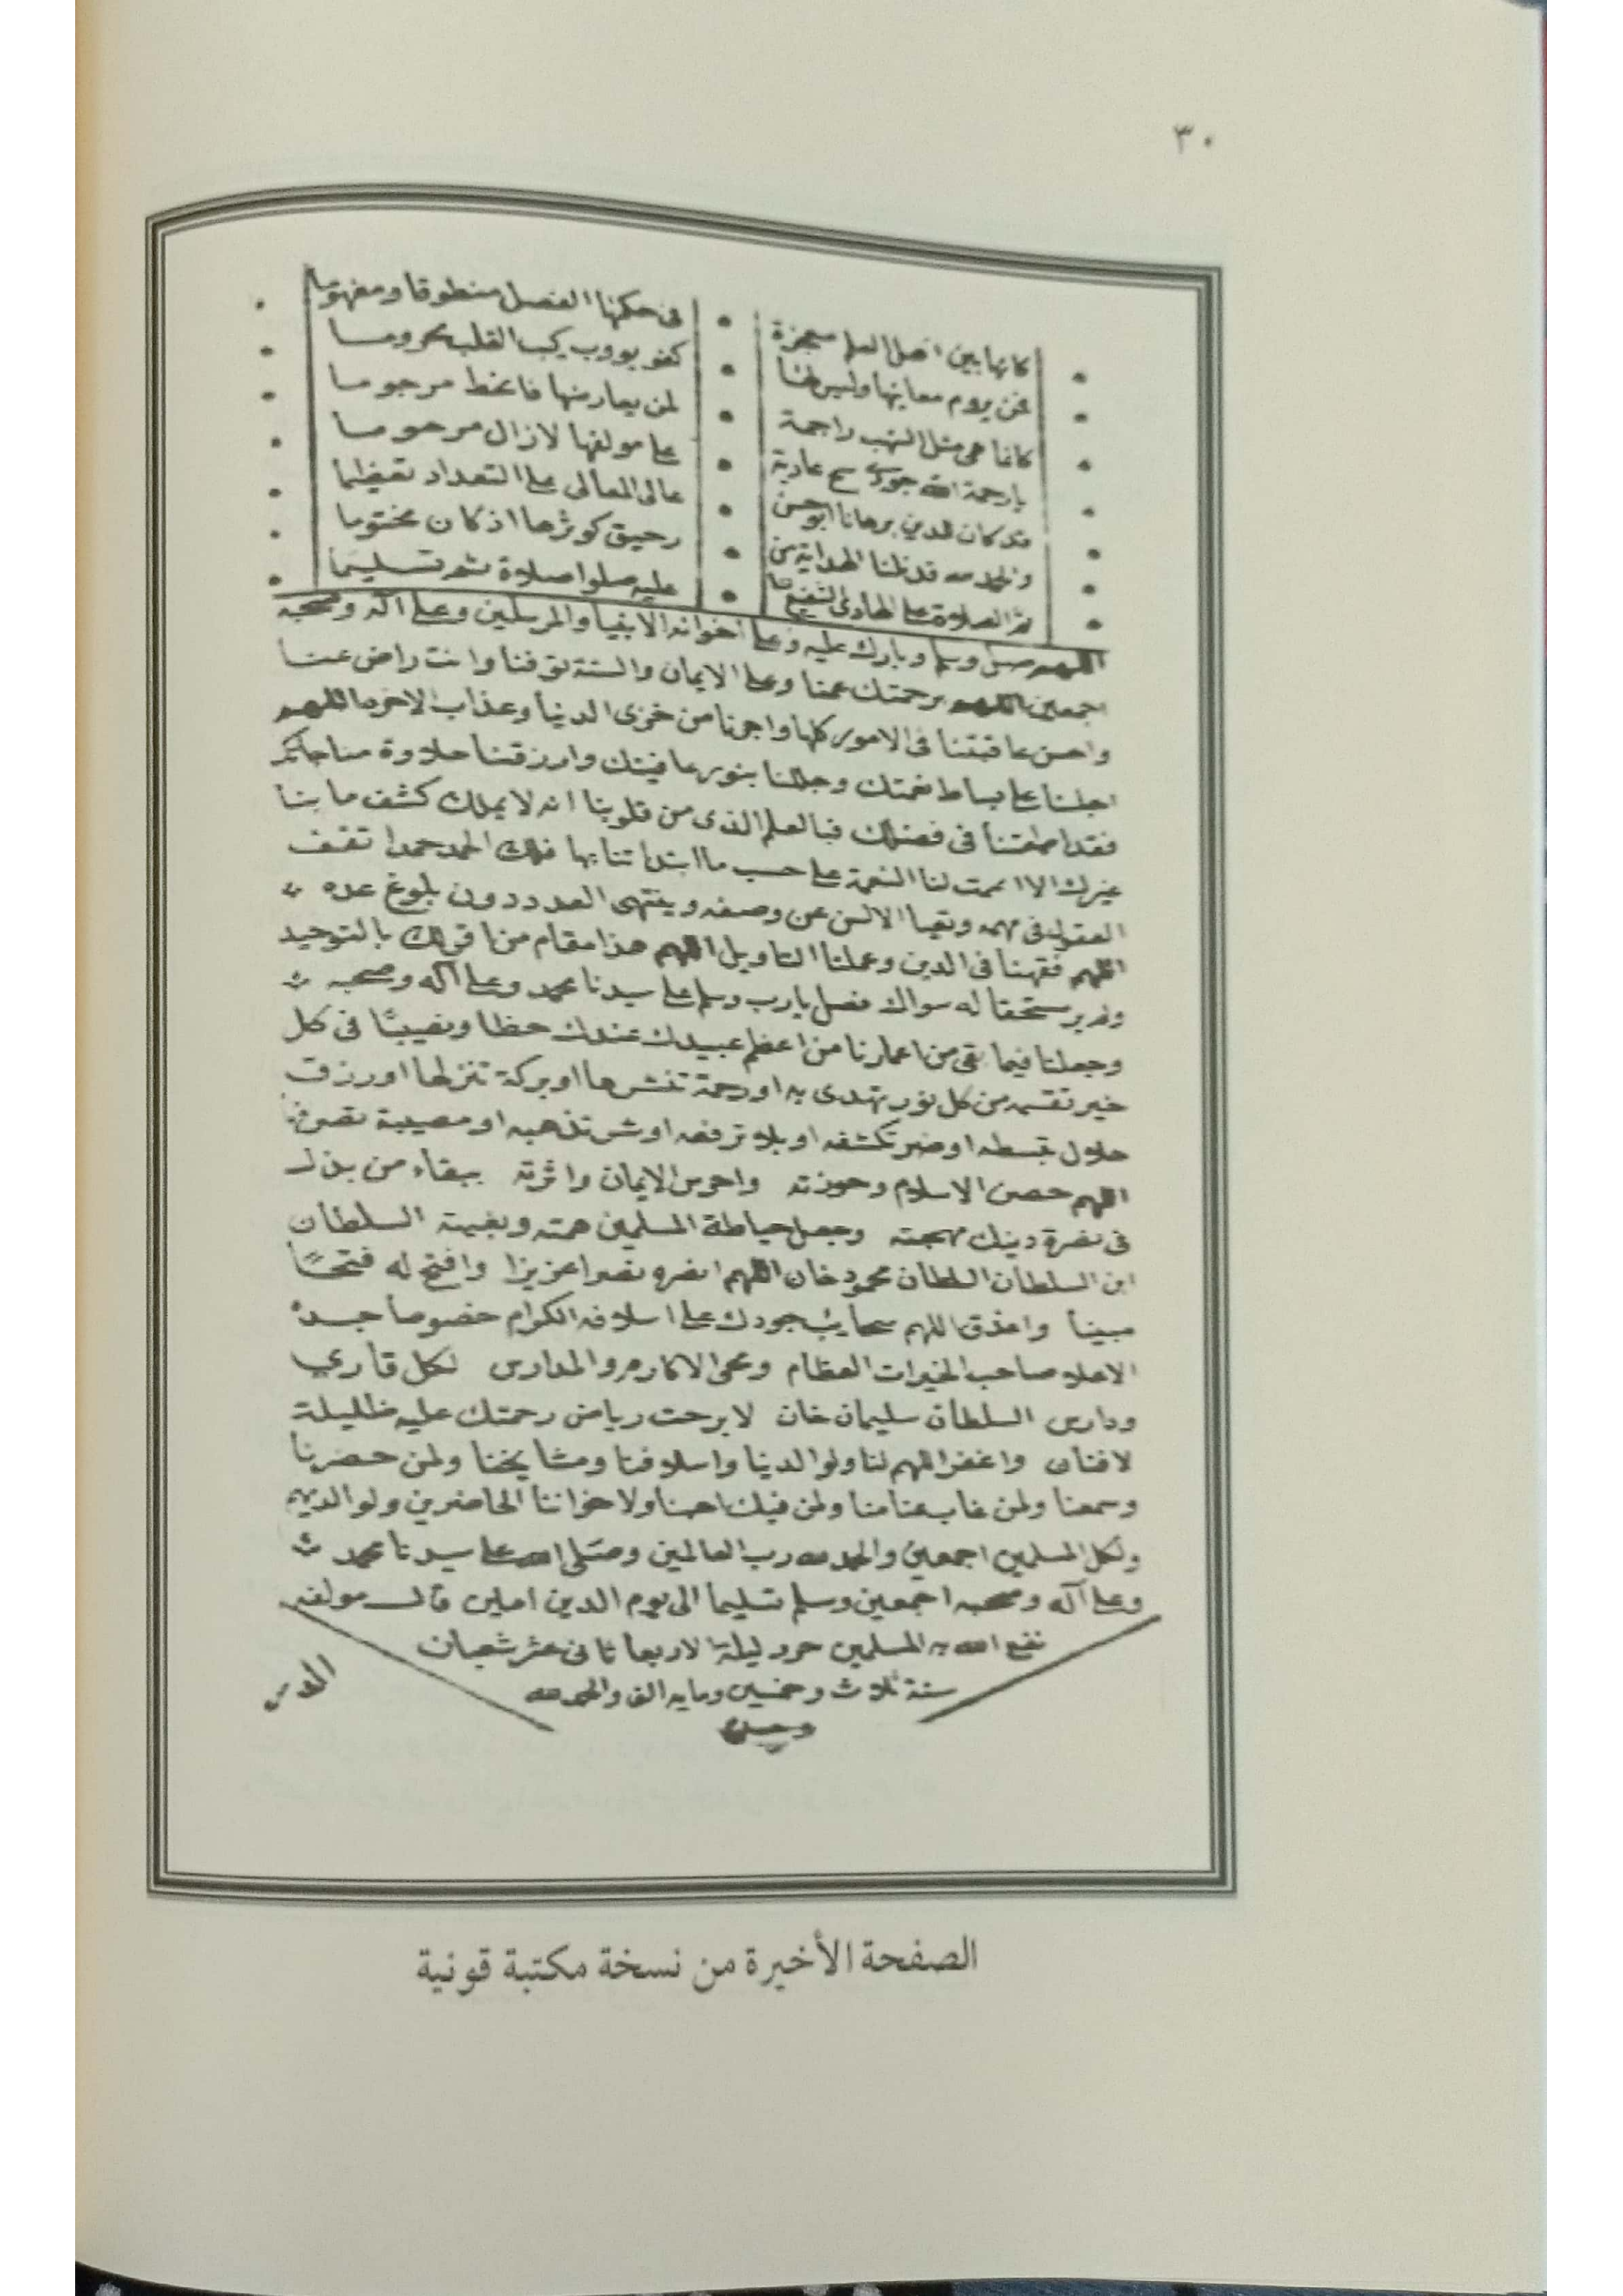 ٣٠
كانها بين اهل العلم معجزة • في حكمها الفصل منطوقا ومفهوما
فمن يروم معانيها وليس لها • كفو يووب كيب القلب محروما
كانما هي مثل الشهب راجمة • لمن يعارضها فانحط مرجوما
يارحمة الله جودي سح غادية • على مولفها لازال مرحوما
قد كان للدين برهانا ابو حسن • عالى المعالى على التعداد تعظيما
والحمد لله قد نلنا الهداية من • رحيق كوثرها اذ كان مختوما
ثم الصلاة على الهادى الشفيع • عليه صلوا صلاة ثم تسليما
اللهم صل وسلم وبارك عليه وعلى اخوانه الانبيا والمرسلين وعلى آله وصحبه
اجمعين اللهم برحمتك عمنا وعلى الايمان والسنة توفنا وانت راض عنا
واحسن عاقبتنا فى الامور كلها واجرنا من خزى الدنيا وعذاب الاخره اللهم
اجلسنا على بساط نعمتك وجللنا بنور عافيتك وارزقنا حلاوة مناجاتك
فقد اطمعتنا في فضلك فبالعلم الذى من قلوبنا انه لا يملك كشف ما بنا
غيرك الا اتممت لنا النعمة على حسب ما ابتداتنا بها فلك الحمد حمدا تقف
العقول فى مهمه وتعيا الالسن عن وصفه وينتهى العدد دون بلوغ عده
اللهم فقهنا فى الدين وعملنا التاويل اللهم هذا مقام من اقر لك بالتوحيد
ولم ير مستحقا له سواك فصل يارب وسلم على سيدنا محمد وعلى آله وصحبه
وجعلنا فيما بقى من اعمارنا من اعظم عبيدك عندك حظا ونصيبًا فى كل
خير تقسمه من كل نور تهدى به او رحمة تنشرها او بركة تنزلها او رزق
حلال تبسطه او ضر تكشفه او بلا ترفعه او شر تذهبه او مصيبة تصرفها
اللهم حصن الاسلام وحوزته واحرس الايمان واثرته ببقاء من بذل
فى نصرة دينك مهجته وجعل حياطة المسلمين همته وبغيته السلطان
ابن السلطان السلطان محمود خان اللهم انصره نصرا عزيزا وافتح له فتحًا
مبينا واغدق اللهم سحايب جودك على اسلافه الكرام خصوصا جده
الاعلا صاحب الخيرات العظام ومحى الاكارم والمدارس لكل قاري
ودارس السلطان سليمان خان لا برحت رياض رحمتك عليه ظليلة
لافنان واغفر اللهم لنا ولوالدينا واسلافنا ومشايخنا ولمن حضرنا
وسمعنا ولمن غاب عنا منا ولمن فيك احبنا ولاخواننا الحاضرين ولوالديهم
ولكل المسلمين اجمعين والحمد لله رب العالمين وصلى الله على سيدنا محمد
وعلى آله وصحبه اجمعين وسلم تسليما الى يوم الدين امين قال مولفه
نفع الله به المسلمين حرد ليلة الاربعا ثانى عشر شعبان
سنة ثلاث وخمسين ومايه الف والحمد لله
وحده
الصفحة الأخيرة من نسخة مكتبة قونية